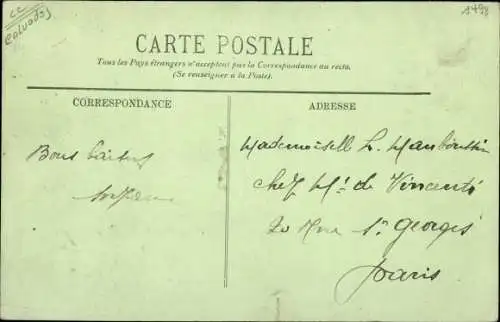 cc
Calvados
1498
CARTE POSTALE
Tous les Pays étrangers n'acceptent pas la Correspondance au recto.
(Se renseigner à la Poste).
CORRESPONDANCE
ADRESSE
Mademoiselle L. Mauboussin
chez Mr. de Vincenti
20 Rue St. Georges
Paris
Bons